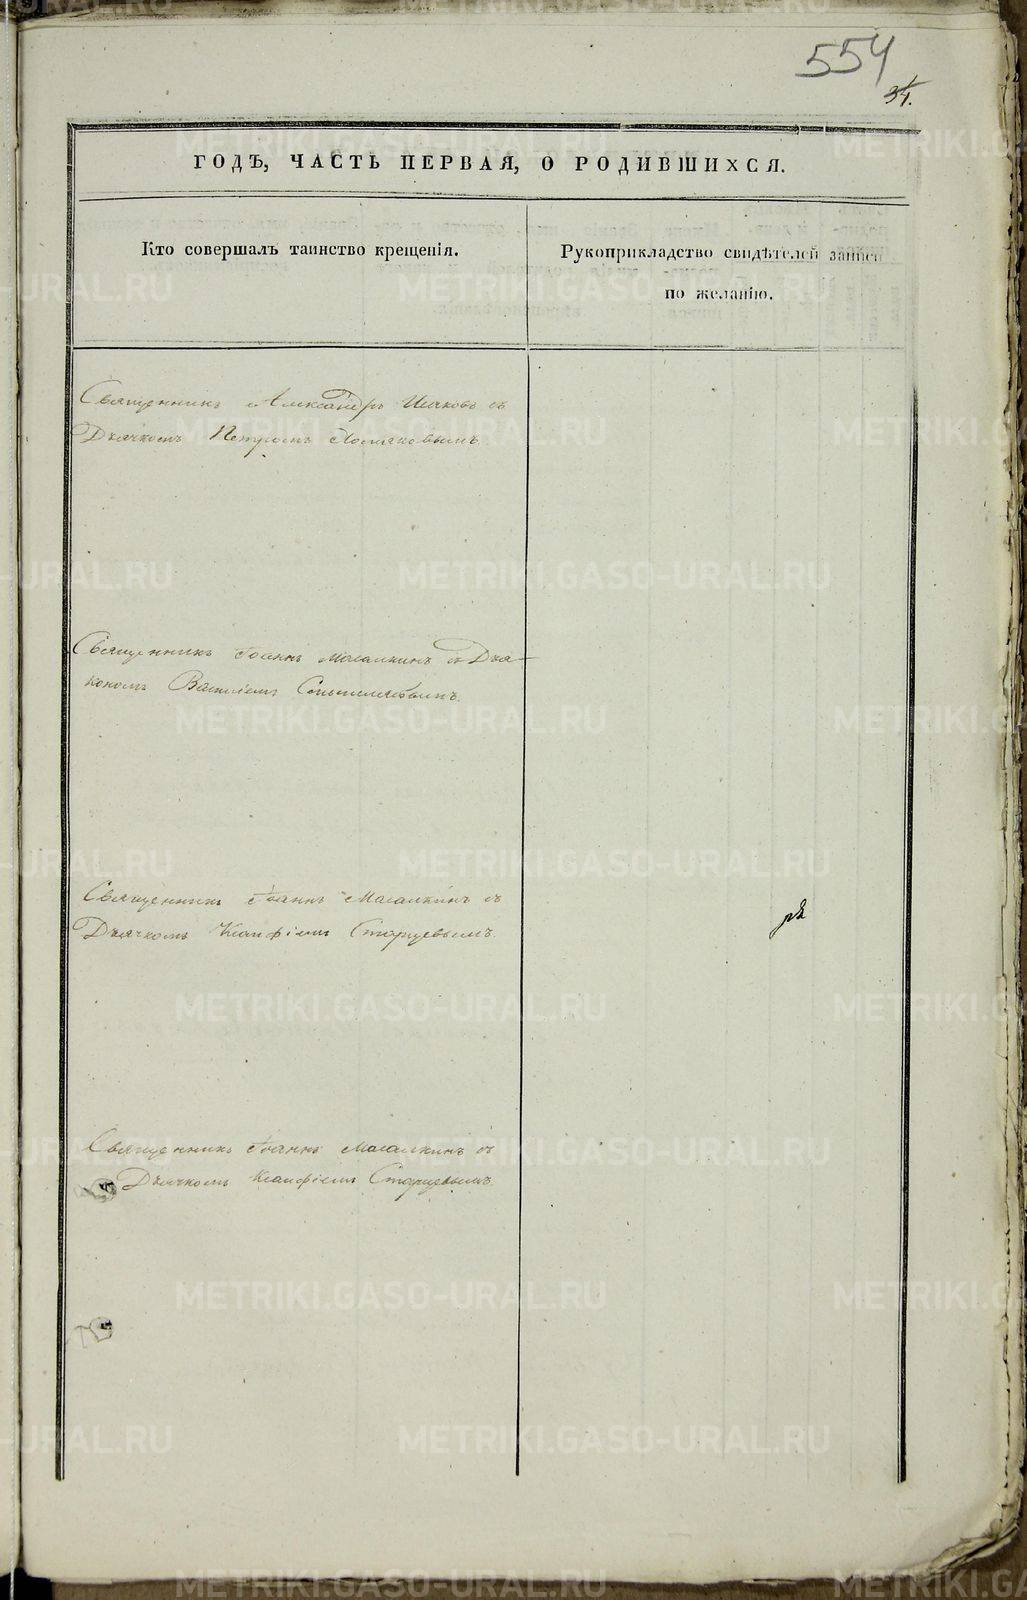 554
34.
ГОДѢ, ЧАСТЬ ПЕРВАЯ, О РОДИВШИХСЯ.
Кто совершалъ таинство крещенія.
Рукоприкладство свидѣтелей записи
по желанію.
Священникъ Александръ съ
Дьячкомъ Петромъ
Священникъ Іоаннъ Масалкинъ съ Дья-
кономъ Василіемъ
Священникъ Іоаннъ Масалкинъ съ
Дьячкомъ Старцевымъ.
Священникъ Іоаннъ Масалкинъ съ
Дьячкомъ Старцевымъ.
METRIKI.GASO-URAL.RU